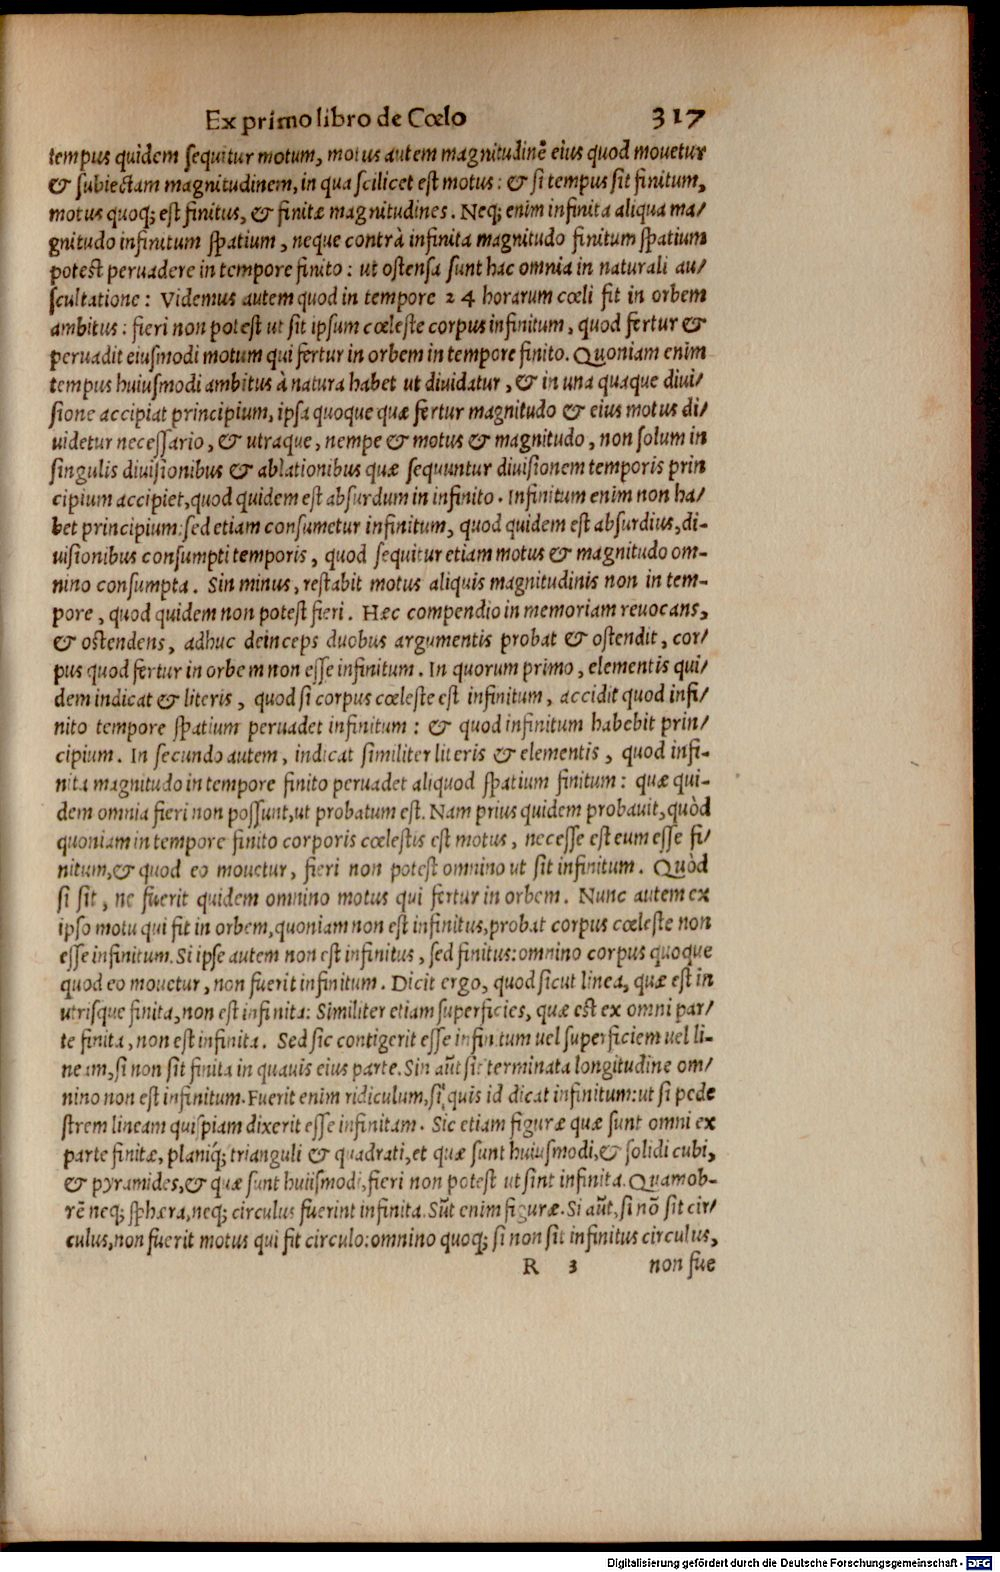 Ex primo libro de Cœlo 317
tempus quidem sequitur motum, motus autem magnitudinē eius quod mouetur
& subiectam magnitudinem, in qua scilicet est motus: & si tempus sit finitum,
motus quoq; est finitus, & finitæ magnitudines. Neq; enim infinita aliqua ma/
gnitudo infinitum spatium, neque contrà infinita magnitudo finitum spatium
potest peruadere in tempore finito: ut ostensa sunt hac omnia in naturali au/
scultatione: Videmus autem quod in tempore 24 horarum cœli fit in orbem
ambitus: fieri non potest ut sit ipsum cœleste corpus infinitum, quod fertur &
peruadit eiusmodi motum qui fertur in orbem in tempore finito. Quoniam enim
tempus huiusmodi ambitus à natura habet ut diuidatur, & in una quaque diui/
sione accipiat principium, ipsa quoque quæ fertur magnitudo & eius motus di/
uidetur necessario, & utraque, nempe & motus & magnitudo, non solum in
singulis diuisionibus & ablationibus quæ sequuntur diuisionem temporis prin
cipium accipiet, quod quidem est absurdum in infinito. Infinitum enim non ha/
bet principium: sed etiam consumetur infinitum, quod quidem est absurdius, di-
uisionibus consumpti temporis, quod sequitur etiam motus & magnitudo om-
nino consumpta. Sin minus, restabit motus aliquis magnitudinis non in tem-
pore, quod quidem non potest fieri. Hæc compendio in memoriam reuocans,
& ostendens, adhuc deinceps duobus argumentis probat & ostendit, cor/
pus quod fertur in orbem non esse infinitum. In quorum primo, elementis qui/
dem indicat & literis, quod si corpus cœleste est infinitum, accidit quod infi/
nito tempore spatium peruadet infinitum: & quod infinitum habebit prin/
cipium. In secundo autem, indicat similiter literis & elementis, quod infi-
nita magnitudo in tempore finito peruadet aliquod spatium finitum: quæ qui-
dem omnia fieri non possunt, ut probatum est. Nam prius quidem probauit, quòd
quoniam in tempore finito corporis cœlestis est motus, necesse est eum esse fi/
nitum, & quod eo mouetur, fieri non potest omnino ut sit infinitum. Quòd
si sit, ne fuerit quidem omnino motus qui fertur in orbem. Nunc autem ex
ipso motu qui fit in orbem, quoniam non est infinitus, probat corpus cœleste non
esse infinitum. Si ipse autem non est infinitus, sed finitus: omnino corpus quoque
quod eo mouetur, non fuerit infinitum. Dicit ergo, quod sicut linea, quæ est in
utrisque finita, non est infinita: Similiter etiam superficies, quæ est ex omni par/
te finita, non est infinita. Sed sic contigerit esse infinitum uel superficiem uel li/
neam, si non sit finita in quauis eius parte. Sin aūt sit terminata longitudine om/
nino non est infinitum. Fuerit enim ridiculum, si quis id dicat infinitum: ut si pede
strem lineam quispiam dixerit esse infinitam. Sic etiam figuræ quæ sunt omni ex
parte finitæ, planíq; trianguli & quadrati, et quæ sunt huiusmodi, & solidi cubi,
& pyramides, & quæ sunt huiismodi, fieri non potest ut sint infinita. Quamob-
rē neq; sphæra, neq; circulus fuerint infinita. Sūt enim figuræ. Si aūt, si nō sit cir/
culus, non fuerit motus qui fit circulo: omnino quoq; si non sit infinitus circulus,
R 3 non fue
Digitalisierung gefördert durch die Deutsche Forschungsgemeinschaft - DFG